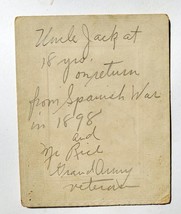 Uncle Jack at
18 yrs.
on return
from Spanish War
in 1898
and
Mr Rich
Grand Army
veteran